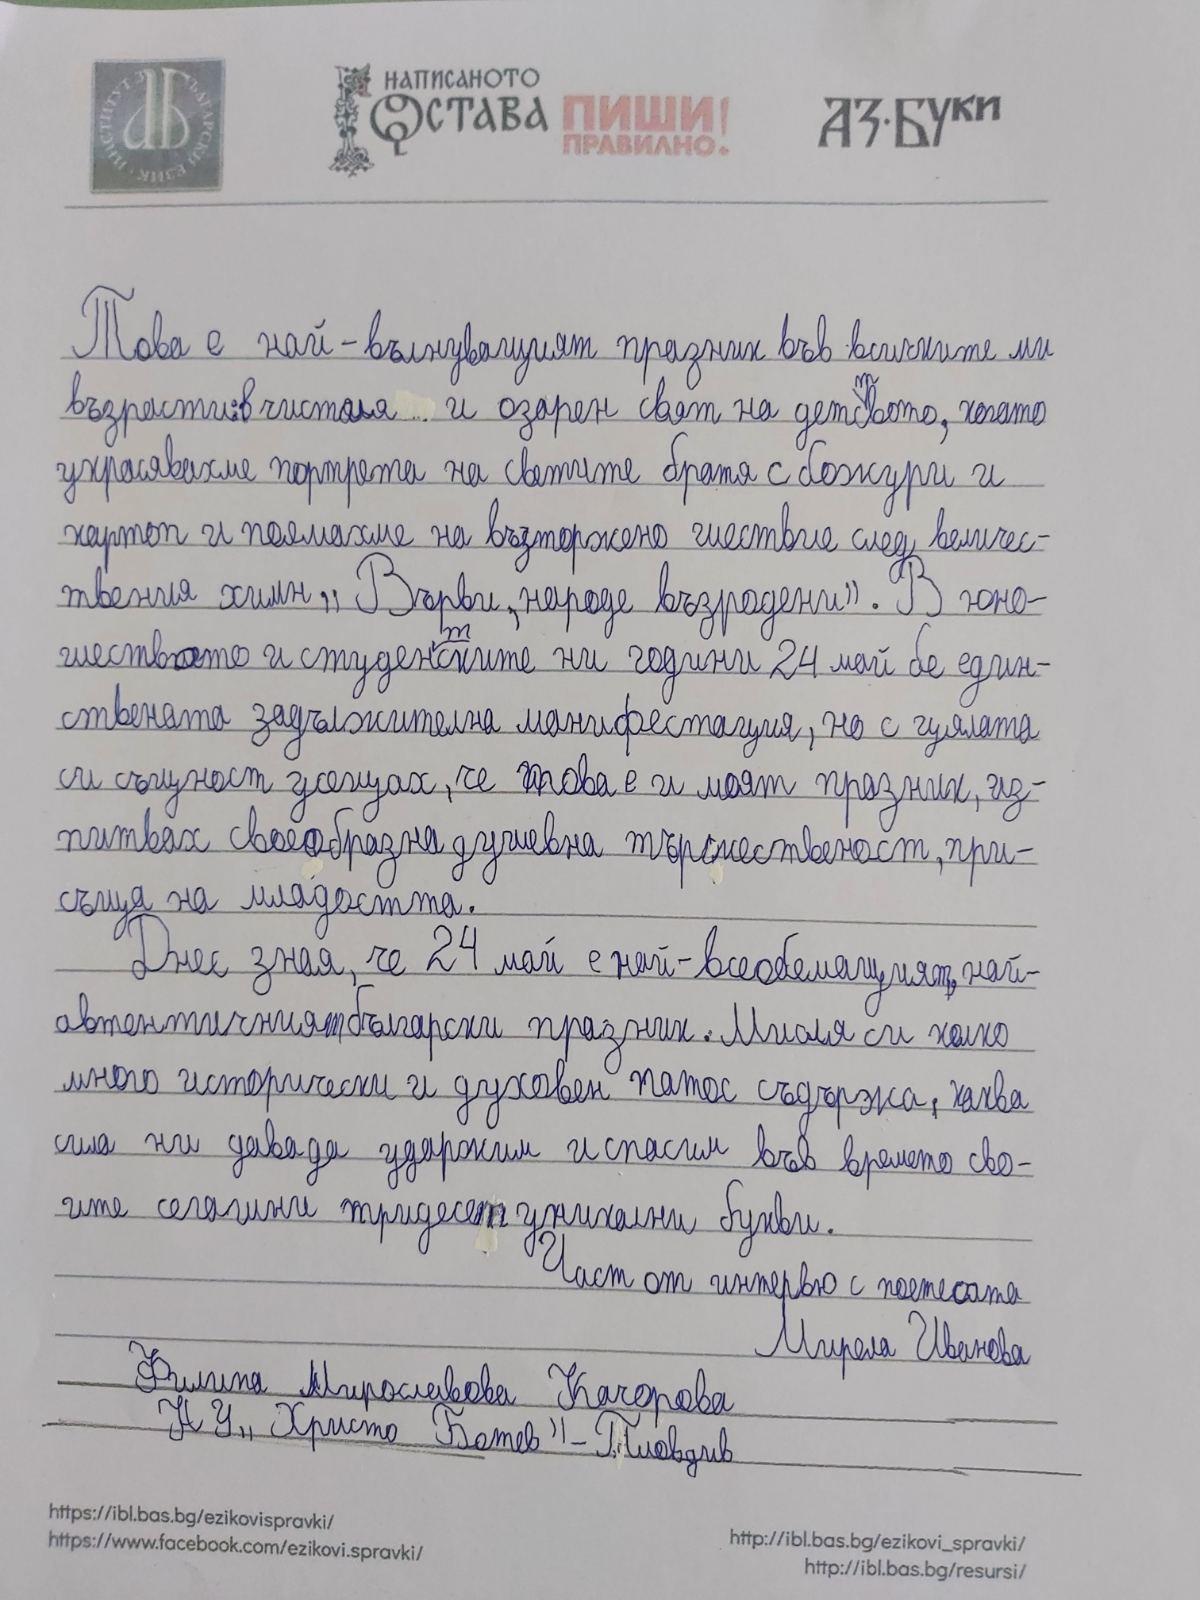 ИНСТИТУТ ЗА БЪЛГАРСКИ ЕЗИК
НАПИСАНОТО
ОСТАВА
ПИШИ
ПРАВИЛНО!
АЗ·БУКИ
Това е най-вълнуващият празник във всичките ми
възрасти: в чистия и озарен свят на детството, когато
украсявахме портрета на светите братя с божури и
картоп и поемахме на възторжено шествие след величес-
твения химн „Върви, народе възродени". В юно-
шеството и студентските ни години 24 май бе един-
ствената задължителна манифестация, но с цялата
си същност усещах, че това е и моят празник, из-
питвах своеобразна душевна тържественост, при-
съща на младостта.
Днес зная, че 24 май е най-всеобемащият, най-
автентичният български празник. Мисля си колко
много исторически и духовен патос съдържа, каква
сила ни дава да удържим и спасим във времето сво-
ите сегашни тридесет уникални букви.
Част от интервю с поетесата
Мирела Иванова
Филипа Мирославова Качорова
НУ „Христо Ботев" - Пловдив
https://ibl.bas.bg/ezikovispravki/
https://www.facebook.com/ezikovi.spravki/
http://ibl.bas.bg/ezikovi_spravki/
http://ibl.bas.bg/resursi/